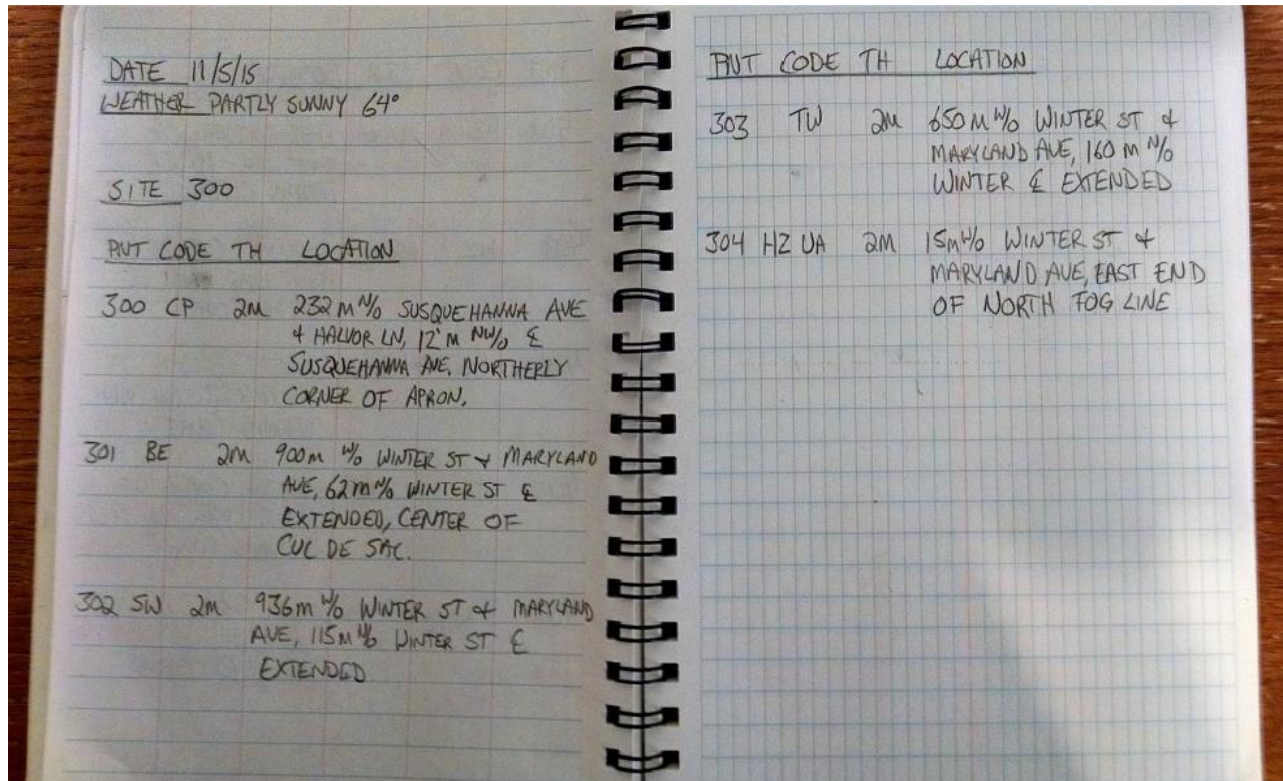 DATE 11/5/15
WEATHER PARTLY SUNNY 64°
SITE 300
PNT CODE TH LOCATION
300 CP 2M 232 M N/O SUSQUEHANNA AVE
+ HALVOR LN, 12 M NW/O ℄
SUSQUEHANNA AVE, NORTHERLY
CORNER OF APRON.
301 BE 2M 900M W/O WINTER ST + MARYLAND
AVE, 62 M N/O WINTER ST ℄
EXTENDED, CENTER OF
CUL DE SAC.
302 SW 2M 936M W/O WINTER ST + MARYLAND
AVE, 115M N/O WINTER ST ℄
EXTENDED
PNT CODE TH LOCATION
303 TW 2M 650 M W/O WINTER ST +
MARYLAND AVE, 160 M N/O
WINTER ℄ EXTENDED
304 HZ UA 2M 15M W/O WINTER ST +
MARYLAND AVE, EAST END
OF NORTH FOG LINE